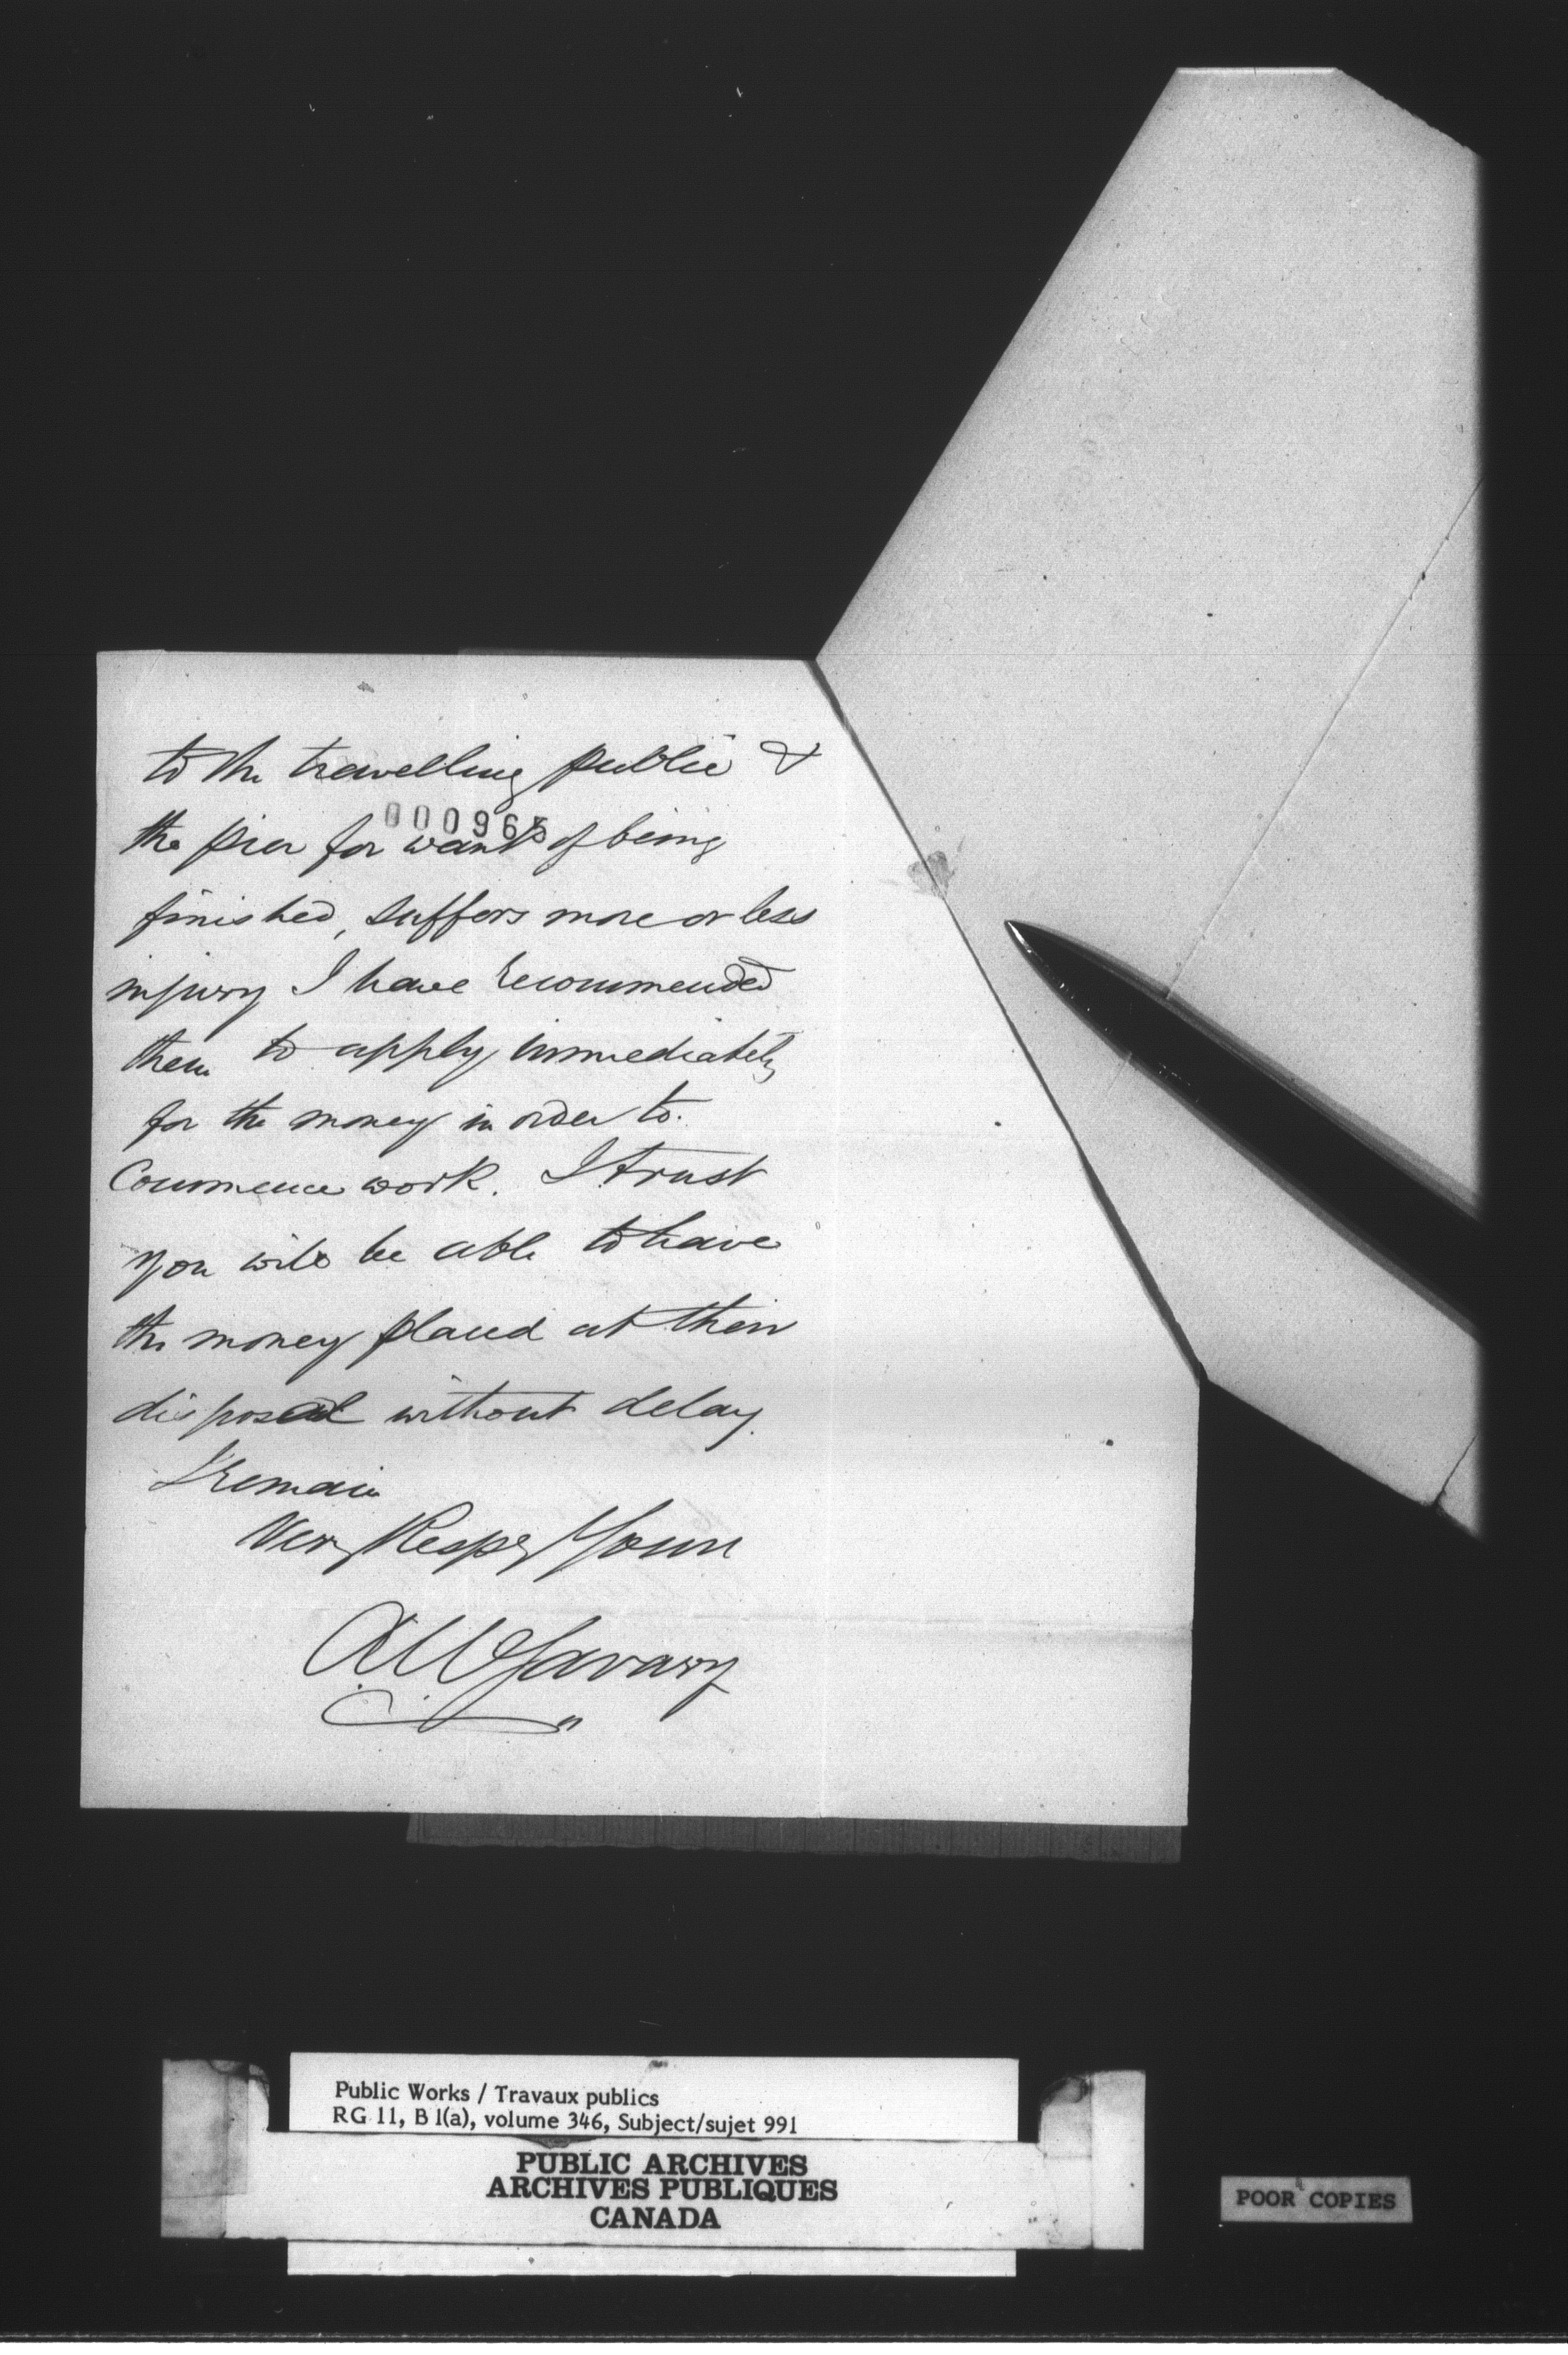 to the travelling public &
000965
the pier for want of being
finished, suffers more or less
injury I have recommended
them to apply immediately
for the money in order to.
Commence work. I trust
you will be able to have
the money placed at their
disposal without delay.
I remain
Very Respy Yours
A W Savary
Public Works / Travaux publics
RG 11, B 1(a), volume 346, Subject/sujet 991
PUBLIC ARCHIVES
ARCHIVES PUBLIQUES
CANADA
POOR COPIES